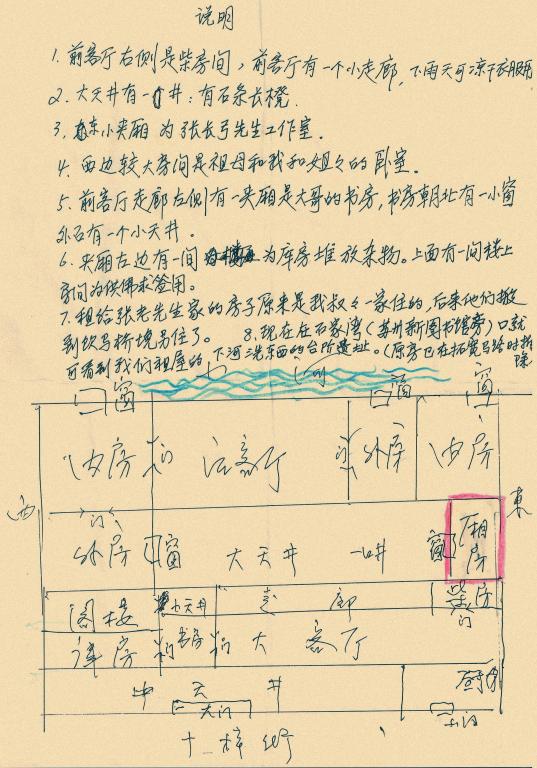 说明
1. 前客厅右侧是柴房间，前客厅有一个小走廊，下雨天可凉干衣服用
2. 大天井有一口井；有石条长凳.
3. 东小夹厢 为张长弓先生工作室.
4. 西边较大房间是祖母和我和姐々的卧室.
5. 前客厅走廊左侧有一夹厢是大哥的书房，书房朝北有一小窗
外有一个小天井.
6. 夹厢左边有一间 为库房堆放杂物。上面有一间楼上
房间为供佛求签用。
7. 租给张老先生家的房子原来是我叔々一家住的，后来他们搬
到饮马桥堍另住了. 8. 现在在石家湾（苏州新图书馆旁）口就
可看到我们祖屋的，下河洗东西的台阶遗址。（原房已在拓宽马路时拆
除
窗 河 窗 窗
内房 门 后客厅 门 外房 内房
西 東
门
外房 窗 大天井 井 窗 厢房
阁楼 小天井 走廊 柴房
门
库房 门 书房 门 大客厅
中天井 厨房
大门
十梓街